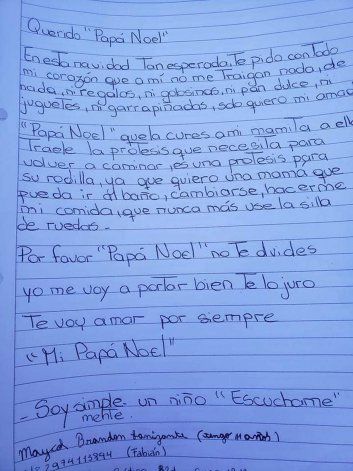 Querido "Papá Noel"
En esta navidad Tan esperada, Te pido con Todo
mi corazón que a mí no me Traigan nada, de
nada, ni regalos, ni golosinas, ni pan dulce, ni
juguetes, ni garrapiñadas, solo quiero mi amado
"Papá Noel" que la cures a mi mamita a ella
Traele la protesis que necesita para
volver a caminar, es una protesis para
su rodilla, ya que quiero una mama que
pueda ir al baño, cambiarse, hacerme
mi comida, que nunca más use la silla
de ruedas.
Por favor "Papá Noel" no Te olvides
yo me voy a portar bien Te lo juro
Te voy amar por siempre
"Mi Papá Noel"
- Soy simple un niño "Escuchame"
mente.
Brandon (tengo 11 años)
2974113894 (Fabián)